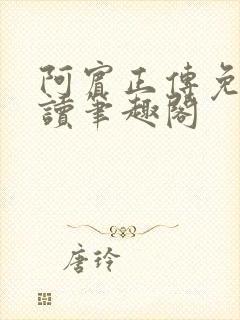 阿賓正傳免
讀筆趣閣
唐玲